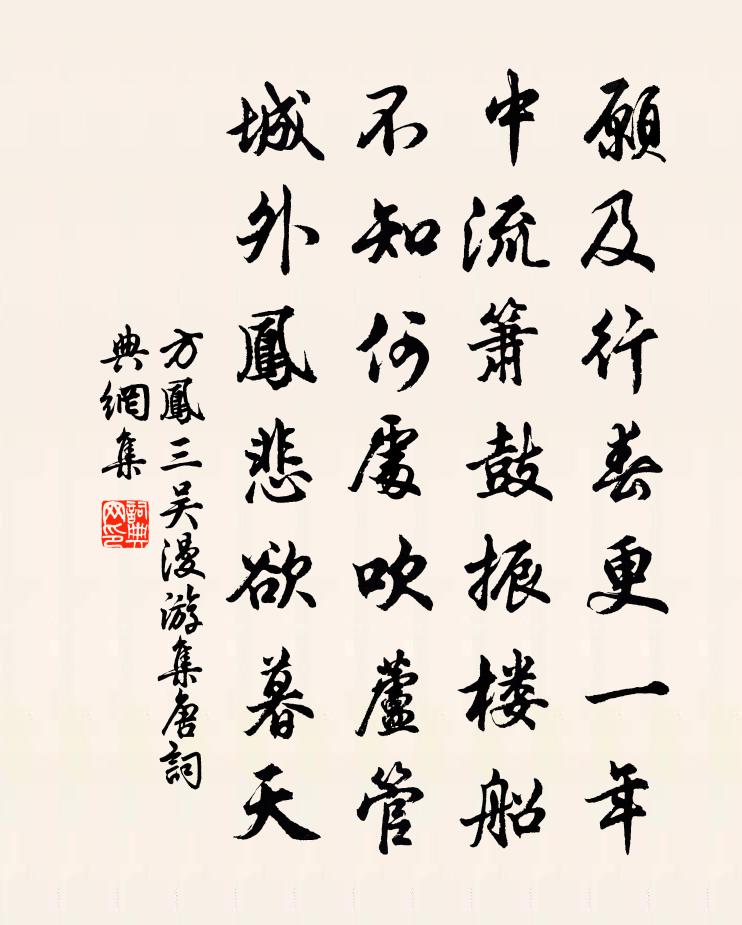 願及行春更一年
中流簫鼓振楼船
不知何處吹蘆管
城外鳳悲欲暮天
方鳳三吴漫游集唐詞
典網集
詞典
网印